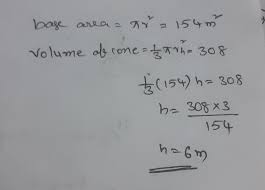 base area = πr² = 154m²
Volume of cone = 1/3 πr²h = 308
1/3 (154) h = 308
h = 308 × 3 / 154
h = 6m